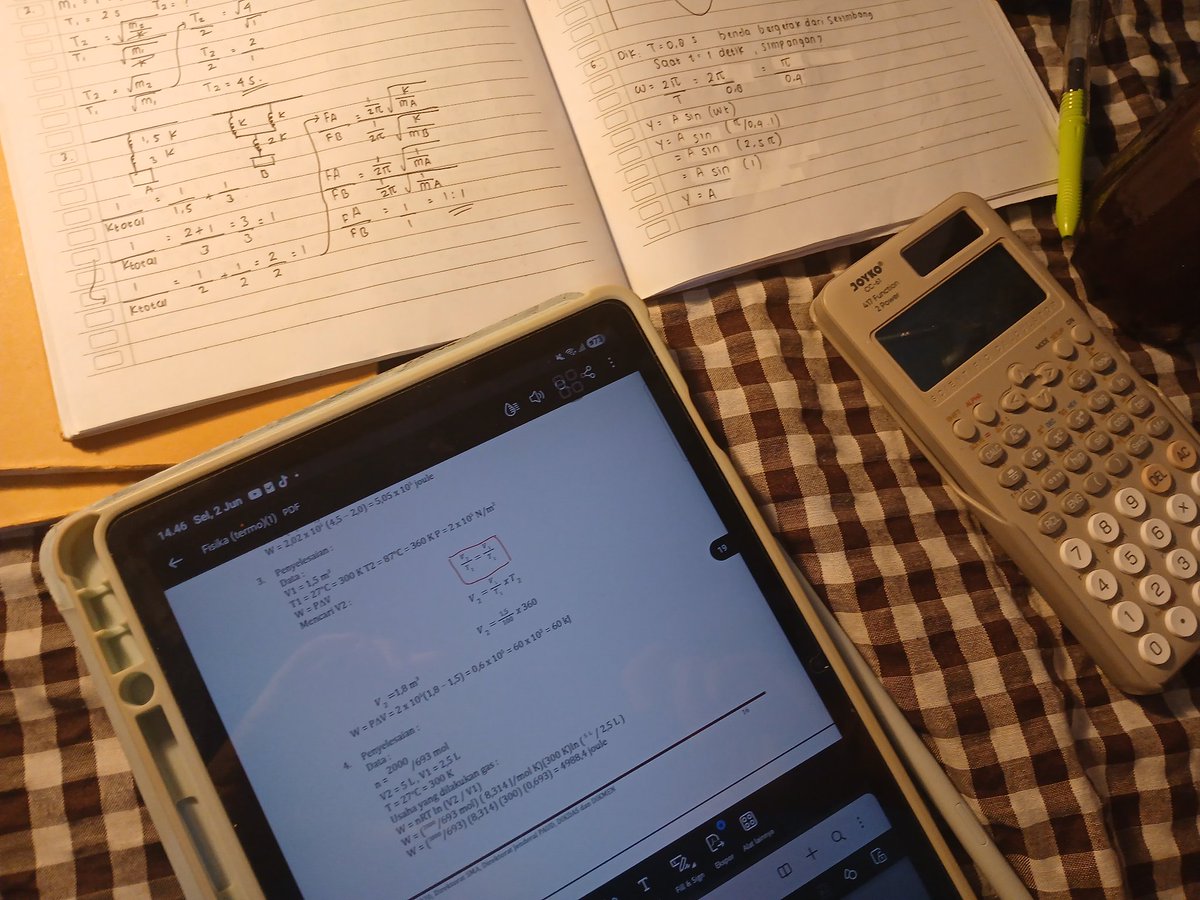 2.
T₂/T₁ = √(m₂/k) / √(m₁/k)
T₂/2 = √4/√1
T₂/2 = 2/1
T₂/T₁ = √m₂/√m₁
T₂ = 4 s
3.
1,5 K
3 K
A
K
K
2K
B
1/Ktotal = 1/1,5 + 1/3
1/Ktotal = 2+1/3 = 3/3 = 1
1/Ktotal = 1/2 + 1/2 = 2/2 = 1
FA/FB = 1/2π √(K/mA) / 1/2π √(K/mB)
FA/FB = 1/2π √(1/mA) / 1/2π √(1/mA)
FA/FB = 1/1 = 1:1
6. Dik: T = 0,8 s benda bergerak dari setimbang
Saat t = 1 detik, simpangan?
ω = 2π/T = 2π/0,8 = π/0,4
y = A sin (ωt)
y = A sin (π/0,4 . 1)
= A sin (2,5π)
= A sin (1)
y = A
JOYKO
CC-61
417 Function
2 Power
MODE
ON
ALPHA
DEL
AC
7 8 9
4 5 6 ×
1 2 3
0 •
14.46 Sel, 2 Jun
Fisika (termo)(1) PDF
19
W = 2,02 x 10⁵ (4,5 – 2,0) = 5,05 x 10⁵ joule
3. Penyelesaian :
Data :
V1 = 1,5 m³
T1 = 27°C = 300 K T2 = 87°C = 360 K P = 2 x 10⁵ N/m²
W = PΔV
Mencari V2 :
V₂/T₂ = V₁/T₁
V₂ = V₁/T₁ x T₂
V₂ = 1,5/300 x 360
V₂ = 1,8 m³
W = PΔV = 2 x 10⁵(1,8 – 1,5) = 0,6 x 10⁵ = 60 x 10³ = 60 kJ
4. Penyelesaian :
Data :
n = 2000/693 mol
V2 = 5 L, V1 = 2,5 L
T = 27°C = 300 K
Usaha yang dilakukan gas :
W = nRT ln (V2 / V1)
W = (2000/693 mol) ( 8,314 J/mol K)(300 K)ln ( 5 L / 2,5 L )
W = (2000/693) (8,314) (300) (0,693) = 4988,4 joule
Direktorat SMA, Direktorat Jenderal PAUD, DIKDAS dan DIKMEN
Fill & Sign
Ekspor
Alat lainnya